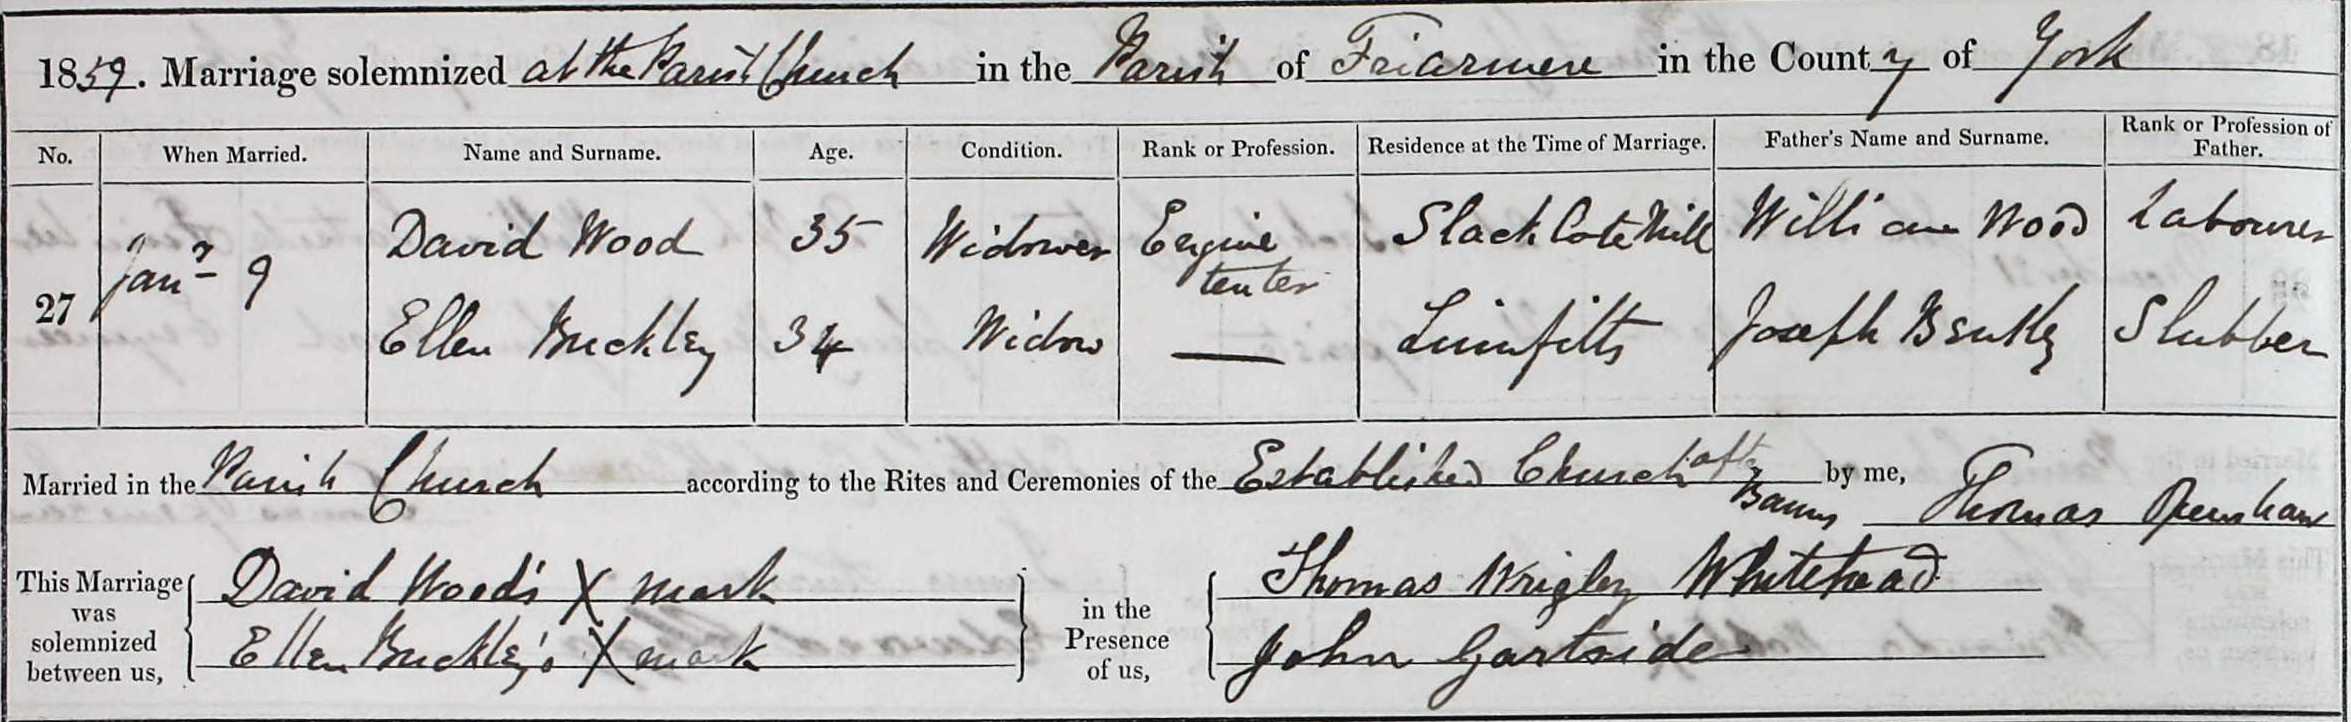 1859. Marriage solemnized at the Parish Church in the Parish of Friarmere in the County of York
No. When Married. Name and Surname. Age. Condition. Rank or Profession. Residence at the Time of Marriage. Father's Name and Surname. Rank or Profession of Father.
27 Jany 9 David Wood 35 Widower Engine tenter Slack Cote Mill William Wood Labourer
Ellen Buckley 34 Widow — Linnfitts Joseph Bentley Slubber
Married in the Parish Church according to the Rites and Ceremonies of the Established Church after Banns by me, Thomas Openshaw
This Marriage was solemnized between us, David Wood's X mark
Ellen Buckley's X mark
in the Presence of us, Thomas Wrigley Whitehead
John Gartside